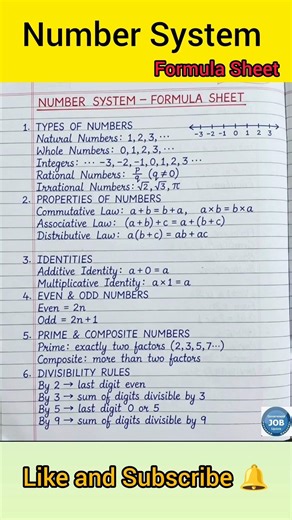 Number System
Formula Sheet
NUMBER SYSTEM – FORMULA SHEET
1. TYPES OF NUMBERS
-3 -2 -1 0 1 2 3
Natural Numbers: 1, 2, 3, ...
Whole Numbers: 0, 1, 2, 3, ...
Integers: ... -3, -2, -1, 0, 1, 2, 3 ...
Rational Numbers: p/q (q ≠ 0)
Irrational Numbers: √2, √3, π
2. PROPERTIES OF NUMBERS
Commutative Law: a + b = b + a, a × b = b × a
Associative Law: (a + b) + c = a + (b + c)
Distributive Law: a (b + c) = ab + ac
3. IDENTITIES
Additive Identity: a + 0 = a
Multiplicative Identity: a × 1 = a
4. EVEN & ODD NUMBERS
Even = 2n
Odd = 2n + 1
5. PRIME & COMPOSITE NUMBERS
Prime: exactly two factors (2, 3, 5, 7...)
Composite: more than two factors
6. DIVISIBILITY RULES
By 2 → last digit even
By 3 → sum of digits divisible by 3
By 5 → last digit 0 or 5
By 9 → sum of digits divisible by 9
JOB
Like and Subscribe 🔔